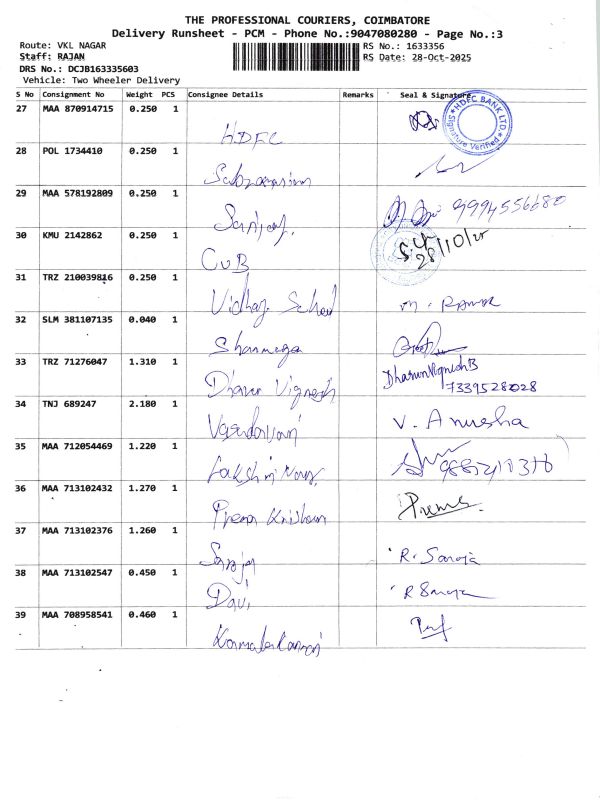 THE PROFESSIONAL COURIERS, COIMBATORE
Delivery Runsheet - PCM - Phone No.:9047080280 - Page No.:3
Route: VKL NAGAR RS No.: 1633356
Staff: RAJAN RS Date: 28-Oct-2025
DRS No.: DCJB163335603
Vehicle: Two Wheeler Delivery
S No Consignment No Weight PCS Consignee Details Remarks Seal & Signature
27 MAA 870914715 0.250 1
HDFC
HDFC BANK LTD. Signature Verified
28 POL 1734410 0.250 1
29 MAA 578192809 0.250 1
Sanjay. 9994556680
30 KMU 2142862 0.250 1
CUB 28/10/25
31 TRZ 210039816 0.250 1
Vidhay School
32 SLM 381107135 0.040 1
Shanmuga
33 TRZ 71276047 1.310 1
Dharun Vignesh DharunVignesh B
7339528028
34 TNJ 689247 2.180 1
V. Anusha
35 MAA 712054469 1.220 1
36 MAA 713102432 1.270 1
Prema Krishnan Prema
37 MAA 713102376 1.260 1
Saroja R. Saroja
38 MAA 713102547 0.450 1
Davi R Saroja
39 MAA 708958541 0.460 1